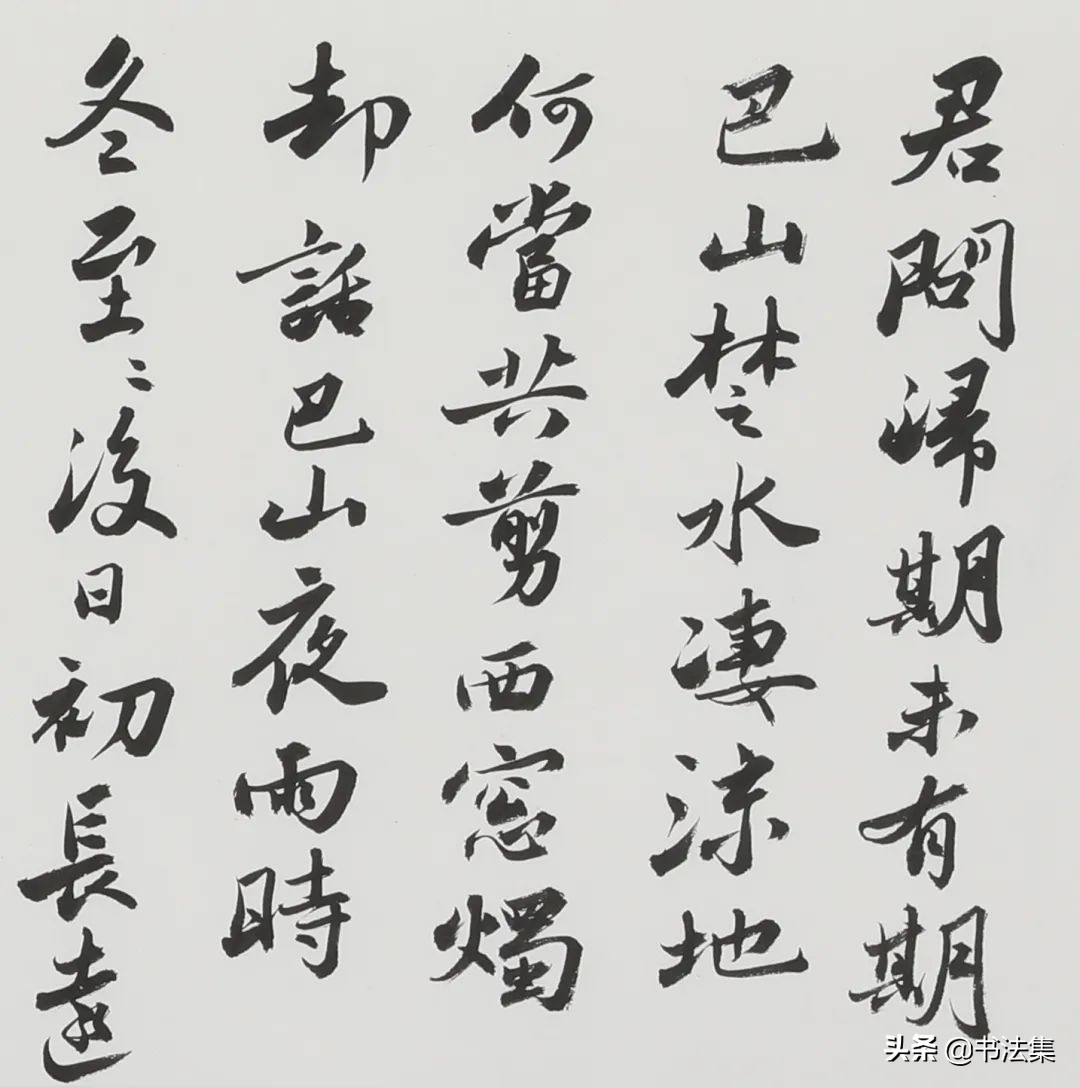 君問歸期未有期
巴山楚水凄涼地
何當共剪西窓燭
却話巴山夜雨時
冬至〻後日初長遠
头条 @书法集